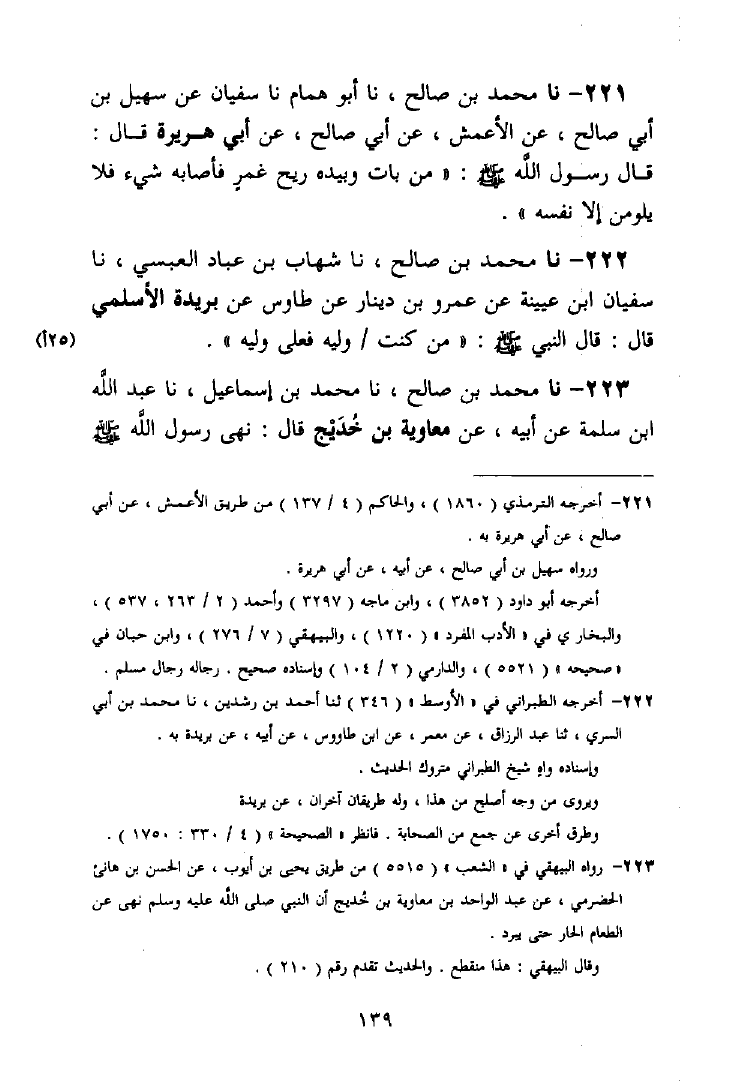 ٢٢١- نا محمد بن صالح ، نا أبو همام نا سفيان عن سهيل بن
أبي صالح ، عن الأعمش ، عن أبي صالح ، عن أبي هريرة قال :
قال رسول الله ﷺ : « من بات وبيده ريح غمرٍ فأصابه شيء فلا
يلومن إلا نفسه » .
٢٢٢- نا محمد بن صالح ، نا شهاب بن عباد العبسي ، نا
سفيان ابن عيينة عن عمرو بن دينار عن طاوس عن بريدة الأسلمي
قال : قال النبي ﷺ : « من كنت / وليه فعلى وليه » . (٢٥أ)
٢٢٣- نا محمد بن صالح ، نا محمد بن إسماعيل ، نا عبد الله
ابن سلمة عن أبيه ، عن معاوية بن خُدَيْج قال : نهى رسول الله ﷺ
٢٢١- أخرجه الترمذي ( ١٨٦٠ ) ، والحاكم ( ٤ / ١٣٧ ) من طريق الأعمش ، عن أبي
صالح ، عن أبي هريرة به .
ورواه سهيل بن أبي صالح ، عن أبيه ، عن أبي هريرة .
أخرجه أبو داود ( ٣٨٥٢ ) ، وابن ماجه ( ٣٢٩٧ ) وأحمد ( ٢ / ٢٦٣ ، ٥٣٧ ) ،
والبخار ي في « الأدب المفرد » ( ١٢٢٠ ) ، والبيهقي ( ٧ / ٢٧٦ ) ، وابن حبان في
« صحيحه » ( ٥٥٢١ ) ، والدارمي ( ٢ / ١٠٤ ) وإسناده صحيح . رجاله رجال مسلم .
٢٢٢- أخرجه الطبراني في « الأوسط » ( ٣٤٦ ) ثنا أحمد بن رشدين ، نا محمد بن أبي
السري ، ثنا عبد الرزاق ، عن معمر ، عن ابن طاووس ، عن أبيه ، عن بريدة به .
وإسناده واهٍ شيخ الطبراني متروك الحديث .
ويروى من وجه أصلح من هذا ، وله طريقان آخران ، عن بريدة
وطرق أخرى عن جمع من الصحابة . فانظر « الصحيحة » ( ٤ / ٣٣٠ : ١٧٥٠ ) .
٢٢٣- رواه البيهقي في « الشعب » ( ٥٥١٥ ) من طريق يحيى بن أيوب ، عن الحسن بن هانئ
الحضرمي ، عن عبد الواحد بن معاوية بن خُديج أن النبي صلى الله عليه وسلم نهى عن
الطعام الحار حتى يبرد .
وقال البيهقي : هذا منقطع . والحديث تقدم رقم ( ٢١٠ ) .
١٣٩